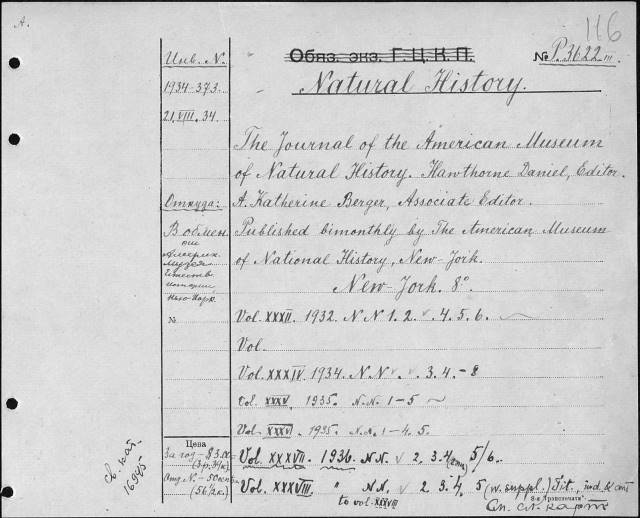 А.
116
Инв. N.
1934-373
21.VIII.34
Обяз. экз. Г.Ц.К.П.
№ P.3622 III
Natural History.
The Journal of the American Museum
of Natural History. Hawthorne Daniel, Editor.
A. Katherine Berger, Associate Editor.
Откуда:
В обмен
от
Америк.
Музея
Естеств.
истории
Нью-Йорк.
Published bimonthly by The American Museum
of National History, New-York.
New-York. 8°
№
Vol. XXXII. 1932. N N 1. 2. v 4. 5. 6.
Vol.
Vol. XXXIV 1934. N.N v. v. 3. 4. - 8
Vol. XXXV. 1935. N.N. 1-5
Vol. XXXVI. 1935. N.N. 1-4. 5.
Цена
За год - $3.00
Отд. N. -
Vol. XXXVII. 1936. N.N. v 2. 3. 4 5/6.
Vol. XXXVIII. " N.N. v 2. 3. 4. 5 (w. suppl.) Tit., ind. & cont
to vol. XXXVIII
св. кат.
16945
3-я „Транспечать"
См. сл. карт.